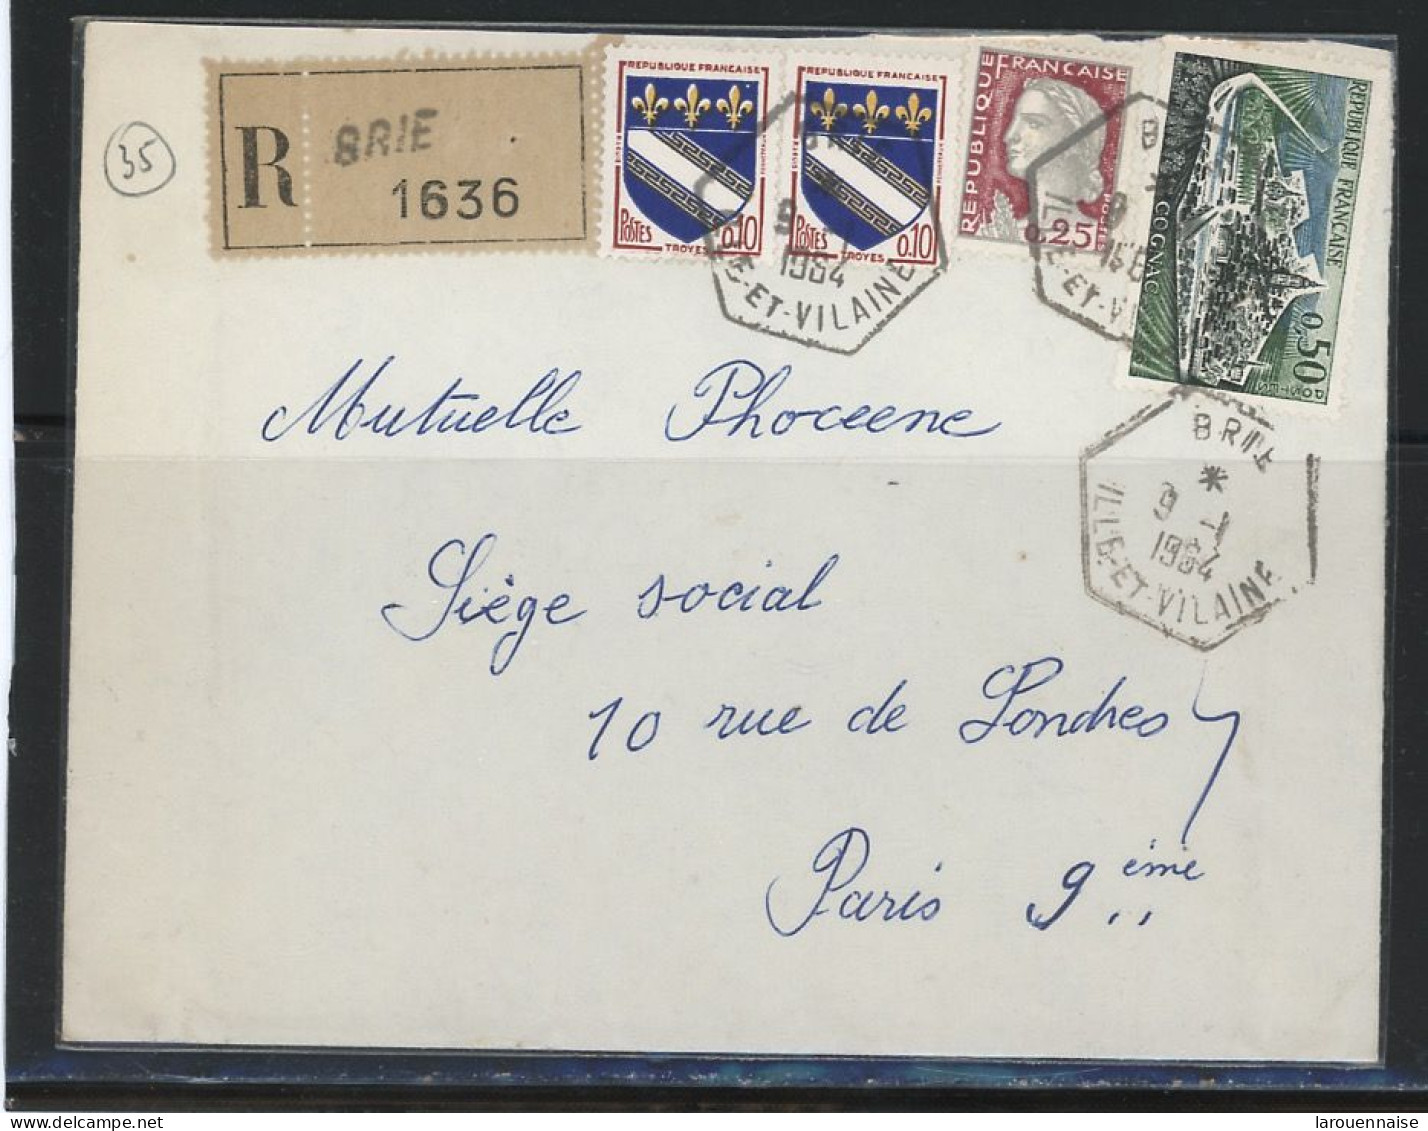 35
R BRIE
1636
REPUBLIQUE FRANCAISE
POSTES 0,10
TROYES
REPUBLIQUE FRANCAISE
POSTES 0,10
TROYES
REPUBLIQUE FRANÇAISE
0,25
REPUBLIQUE FRANCAISE
COGNAC
0,50
POSTES
9 -1
1964
ILLE-ET-VILAINE
BRIE
9 -1
1964
ILLE-ET-VILAINE
Mutuelle Phoceene
Siège social
10 rue de Londres
Paris 9ème
larouennaise